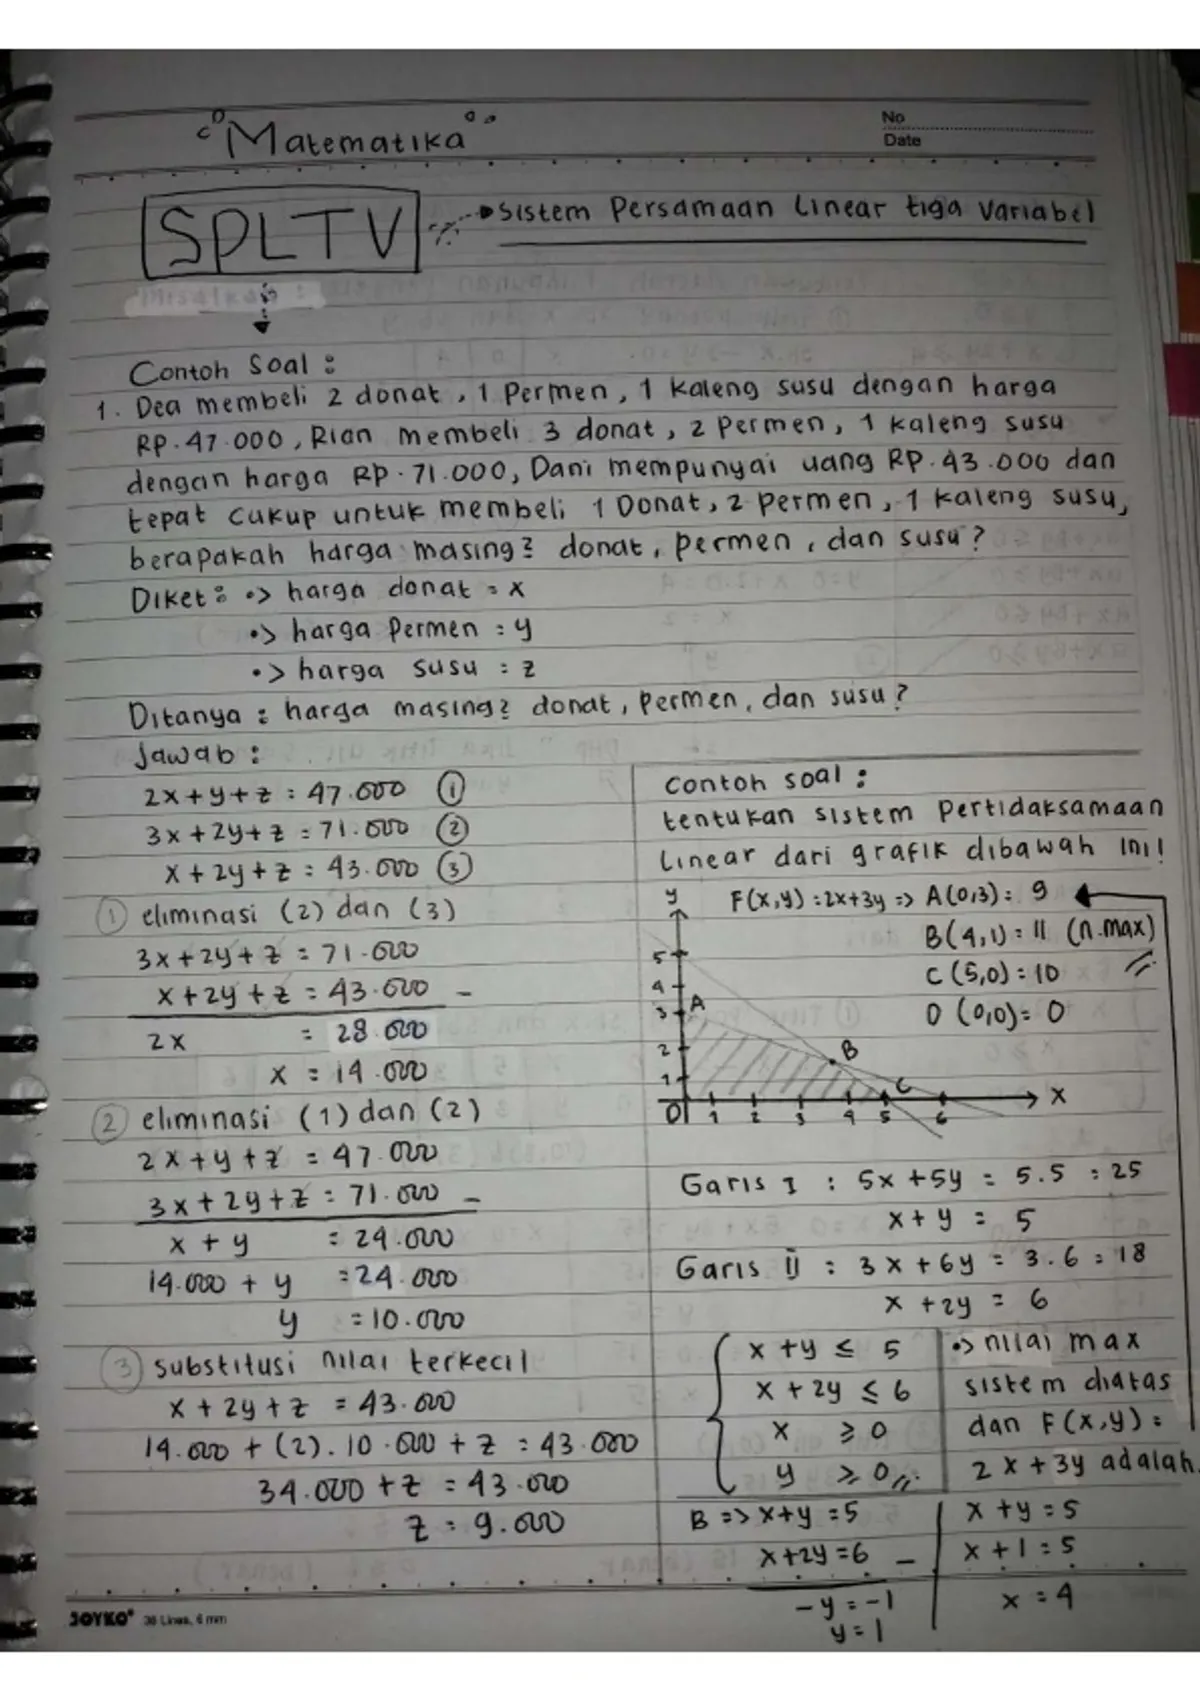 Matematika
No
Date
SPLTV
Sistem Persamaan Linear tiga Variabel
Misalkan :
Contoh Soal :
1. Dea membeli 2 donat, 1 Permen, 1 kaleng susu dengan harga
RP.47.000, Rian membeli 3 donat, 2 Permen, 1 kaleng susu
dengan harga RP.71.000, Dani mempunyai uang RP.43.000 dan
tepat cukup untuk membeli 1 Donat, 2 permen, 1 kaleng susu,
berapakah harga masing2 donat, permen, dan susu?
Diket : •> harga donat = x
•> harga Permen : y
•> harga susu : z
Ditanya : harga masing2 donat, permen, dan susu?
Jawab :
2x+y+z : 47.000 ①
3x+2y+z : 71.000 ②
x+2y+z : 43.000 ③
① eliminasi (2) dan (3)
3x+2y+z = 71.000
x+2y+z = 43.000 -
2x = 28.000
x = 14.000
② eliminasi (1) dan (2)
2x+y+z = 47.000
3x+2y+z = 71.000 -
x+y = 24.000
14.000 + y = 24.000
y = 10.000
③ substitusi nilai terkecil
x+2y+z = 43.000
14.000 + (2).10.000 + z : 43.000
34.000 + z = 43.000
z = 9.000
Contoh soal :
tentukan sistem pertidaksamaan
Linear dari grafik dibawah ini!
F(x,y) : 2x+3y => A(0,3) : 9
B(4,1) = 11 (n.max)
C(5,0) : 10
O(0,0) = 0
y
5
4
3 A
2 B
1 C
0 1 2 3 4 5 6 x
Garis I : 5x+5y = 5.5 = 25
x+y = 5
Garis II : 3x+6y = 3.6 = 18
x+2y = 6
x+y ≤ 5
x+2y ≤ 6
x ≥ 0
y ≥ 0
•> nilai max
sistem diatas
dan F(x,y) :
2x+3y adalah.
B => x+y = 5
x+2y = 6 -
-y = -1
y = 1
x+y = 5
x+1 = 5
x = 4
JOYKO 36 Lines, 6 mm